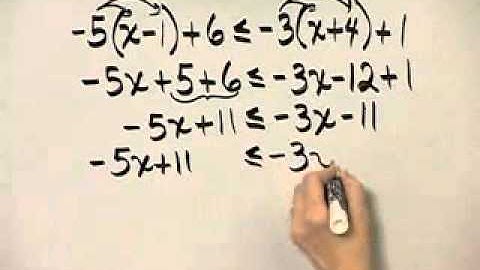 -5(x-1)+6≤-3(x+4)+1
-5x+5+6≤-3x-12+1
-5x+11≤-3x-11
-5x+11 ≤-3x